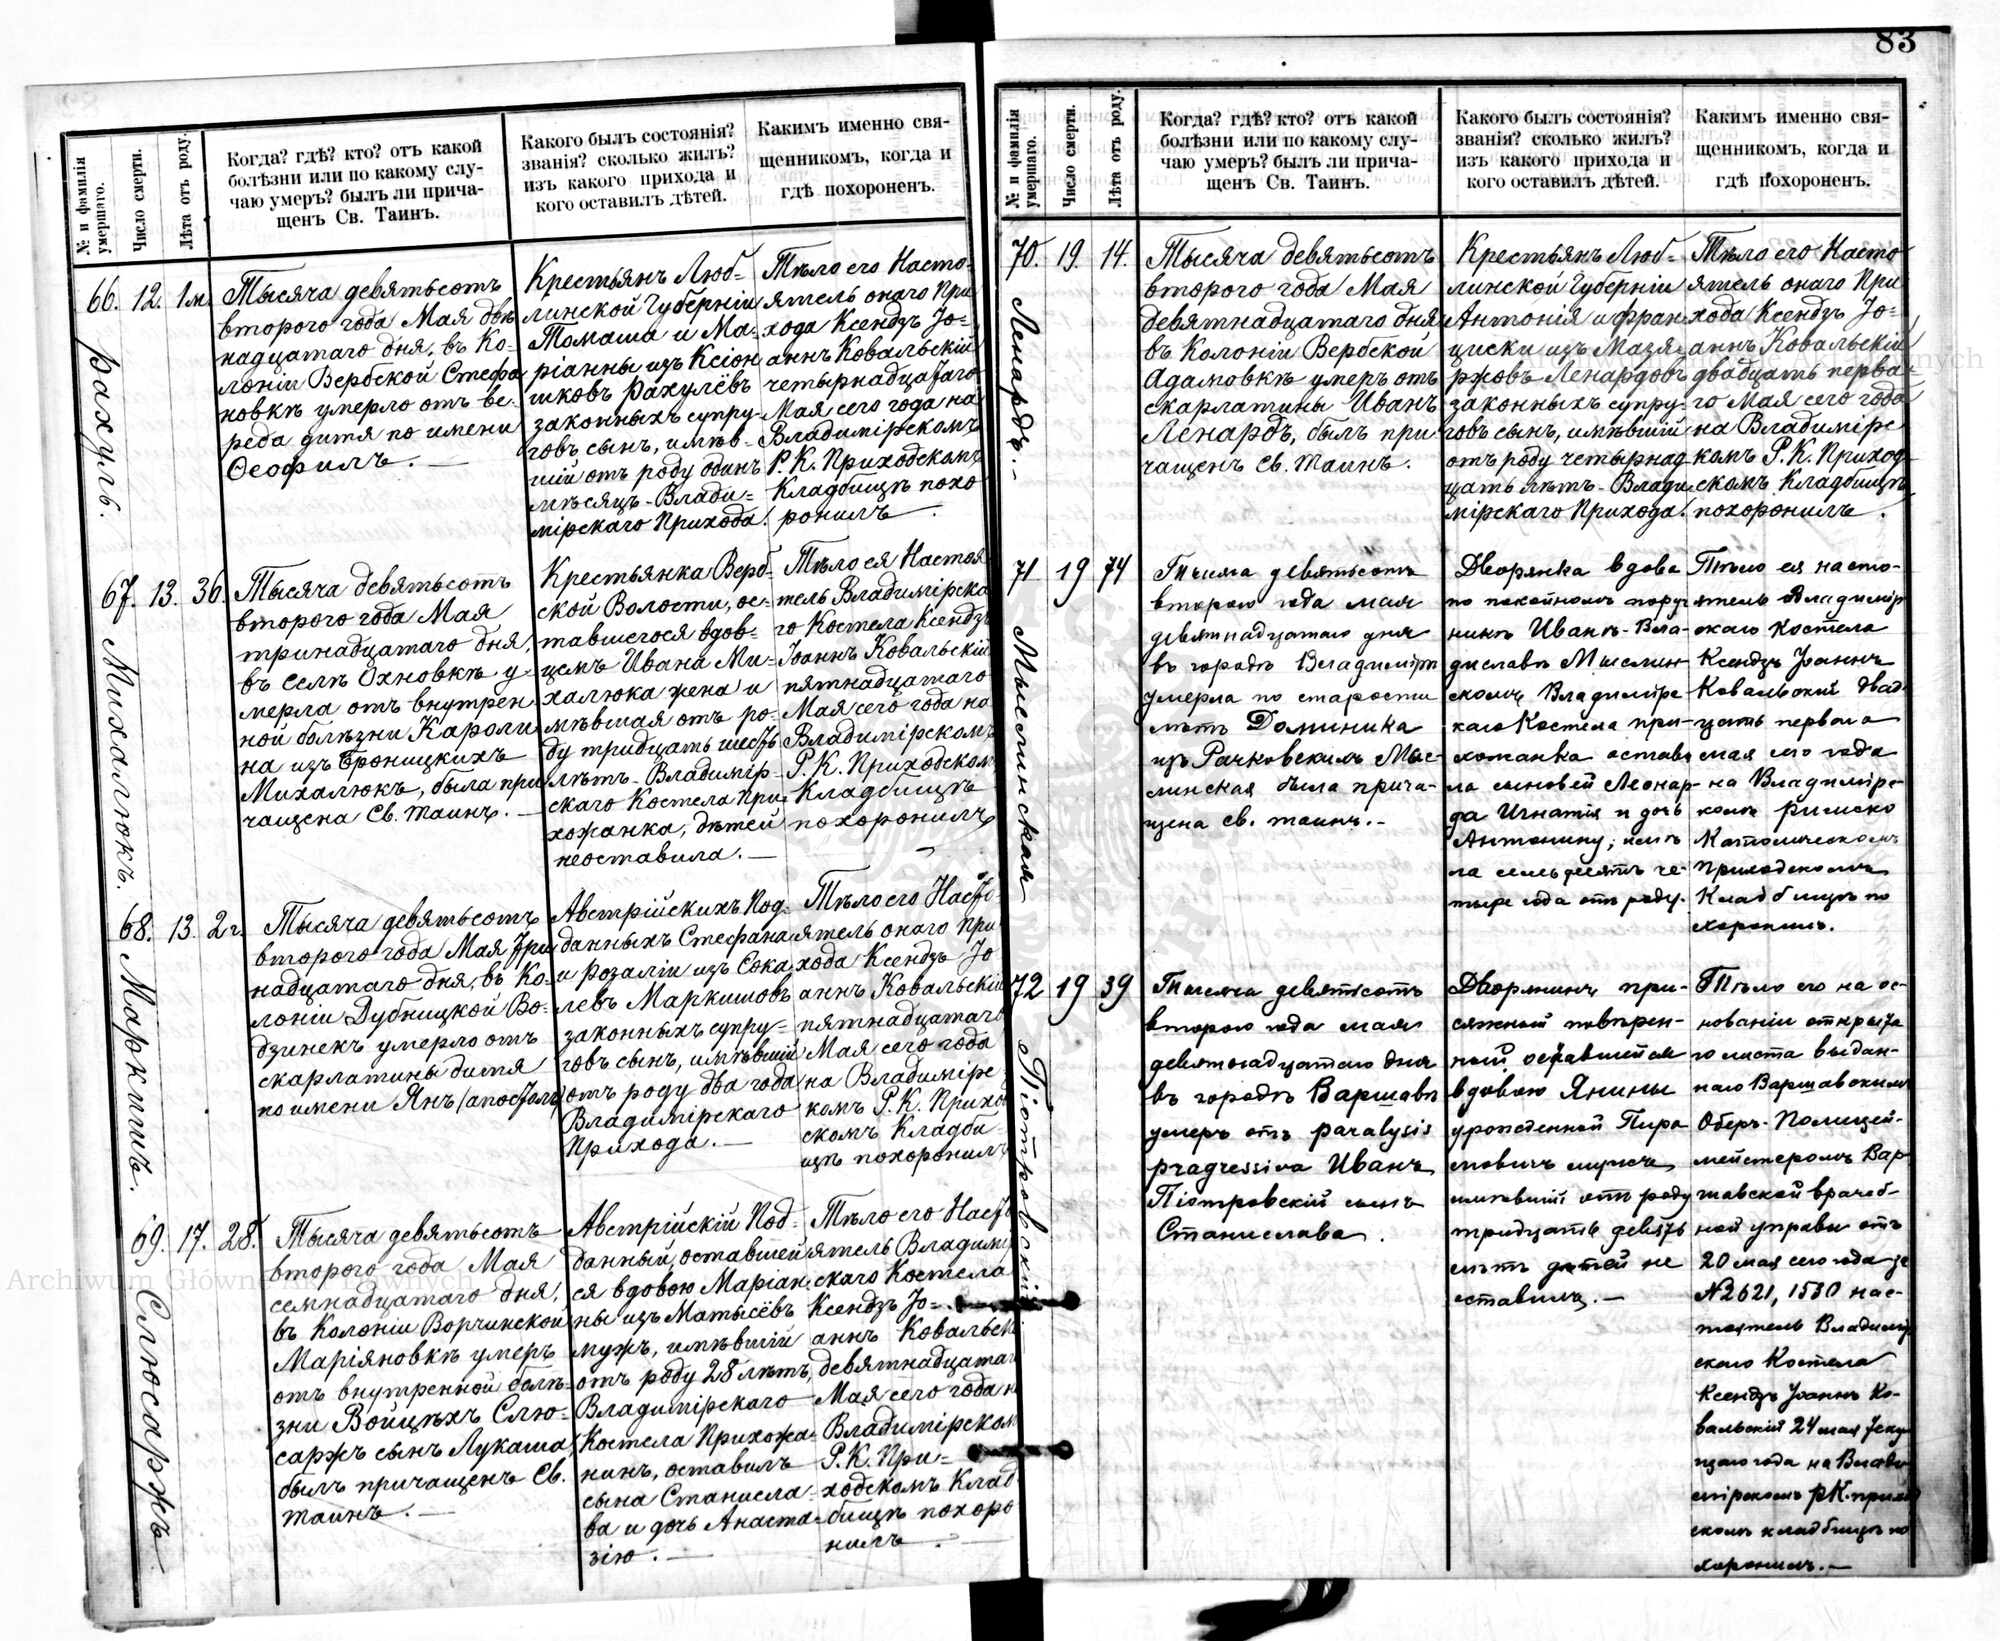 83
№ и фамилія умершаго.
Число смерти.
Лѣта отъ роду.
Когда? гдѣ? кто? отъ какой
болѣзни или по какому слу-
чаю умеръ? былъ ли прича-
щенъ Св. Таинъ.
Какого былъ состоянія?
званія? сколько жилъ?
изъ какого прихода и
кого оставилъ дѣтей.
Какимъ именно свя-
щенникомъ, когда и
гдѣ похороненъ.
66. 12. 1м.
Рахуль.
Тысяча девятьсотъ
второго года Мая двѣ
надцатаго дня, въ Ко-
лоніи Вербской Стефа
новкѣ умерло отъ ве-
реда дитя по имени
Ѳеофилъ. —
Крестьянъ Люб-
линской Губерніи
Томаша и Ма-
ріанны изъ Ксіон
жковъ Рахулёвъ
законныхъ супру-
говъ сынъ, имѣв-
шій отъ роду одинъ
мѣсяцъ - Влади-
мірскаго Прихода.
Тѣло его Насто-
ятель онаго При
хода Ксендзъ Іо-
аннъ Ковальскій
четырнадцатаго
Мая сего года на
Владимірскомъ
Р. К. Приходскомъ
Кладбищѣ похо
ронилъ.
67. 13. 36.
Михалюкъ.
Тысяча девятьсотъ
второго года Мая
тринадцатаго дня,
въ селѣ Охновкѣ у-
мерла отъ внутрен
ной болѣзни Кароли
на изъ Броницкихъ
Михалюкъ, была при
чащена Св. Таинъ. —
Крестьянка Верб-
ской Волости, ос-
тавшегося вдов-
цемъ Ивана Ми-
халюка жена и
мѣвшая отъ ро-
ду тридцать шесть
лѣтъ - Владимір-
скаго Костела При
хожанка, дѣтей
неоставила. —
Тѣло ея Настоя
тель Владимірска
го Костела Ксендзъ
Іоаннъ Ковальскій
пятнадцатаго
Мая сего года на
Владимірскомъ
Р. К. Приходском
Кладбищѣ
похоронилъ
68. 13. 2г.
Маркишъ.
Тысяча девятьсотъ
второго года Мая три
надцатаго дня, въ Ко-
лоніи Дубницкой Во-
дзинекъ умерло отъ
скарлатины дитя
по имени Янъ (апостолъ)
Австрійскихъ Под-
данныхъ Стефана
и Розаліи изъ Сока
левъ Маркишовъ
законныхъ супру-
говъ сынъ, имѣвшій
отъ роду два года
Владимірскаго
Прихода. —
Тѣло его Насто-
ятель онаго При
хода Ксендзъ Іо
аннъ Ковальскій
пятнадцатаго
Мая сего года
на Владимірс
комъ Р. К. Приход
скомъ Кладби-
щѣ похоронилъ
69. 17. 28.
Слюсаржъ.
Тысяча девятьсотъ
второго года Мая
семнадцатаго дня,
въ Колоніи Ворчинской
Маріяновкѣ умеръ
отъ внутренной болѣ-
зни Войцѣхъ Слю-
саржъ сынъ Лукаша,
былъ причащенъ Св.
Таинъ. —
Австрійскій Под-
данный, оставшей
ся вдовою Маріан
ны изъ Матысёвъ
мужъ, имѣвшій
отъ роду 28 лѣтъ,
Владимірскаго
Костела Прихожа-
нинъ, оставилъ
сына Станисла-
ва и дочь Анаста-
зію. —
Тѣло его Насто
ятель Владимір
скаго Костела
Ксендзъ Іо-
аннъ Ковальскі
девятнадцата
Мая сего года н
Владимірском
Р. К. При-
ходскомъ Клад
бищѣ похоро
нилъ. —
№ и фамилія умершаго.
Число смерти.
Лѣта отъ роду.
Когда? гдѣ? кто? отъ какой
болѣзни или по какому слу-
чаю умеръ? былъ ли прича-
щенъ Св. Таинъ.
Какого былъ состоянія?
званія? сколько жилъ?
изъ какого прихода и
кого оставилъ дѣтей.
Какимъ именно свя-
щенникомъ, когда и
гдѣ похороненъ.
70. 19. 14.
Ленардъ.
Тысяча девятьсотъ
второго года Мая
девятнадцатаго дня
въ Колоніи Вербской
Адамовкѣ умеръ отъ
скарлатины Иванъ
Ленардъ, былъ при-
чащенъ Св. Таинъ.
Крестьянъ Люб-
линской Губерніи
Антонія и Фран
циски изъ Мазя-
ржовъ Ленардовъ
законныхъ супру-
говъ сынъ, имѣвшій
отъ роду четырнад
цать лѣтъ - Влади
мірскаго Прихода.
Тѣло его Насто
ятель онаго При
хода Ксендзъ Іо-
аннъ Ковальскій
двадцать перва-
го Мая сего года
на Владимірс
комъ Р. К. Приход
скомъ Кладбищѣ
похоронилъ.
71 19 74
Мыслинская
Тысяча девятьсотъ
второго года мая
девятнадцатаго дня
въ городѣ Владимірѣ
умерла по старости
лѣтъ Доминика
изъ Рачковскихъ Мыс-
линская была прича-
щена св. таинъ. -
Дворянка вдова
по покойномъ пору
чникѣ Иванѣ-Вла-
диславѣ Мыслин-
скомъ Владимірс
каго Костела при-
хожанка остави
ла сыновей Леонар-
да Игнатія и дочь
Антонину, имѣ
ла семьдесятъ че-
тыре года отъ роду.
Тѣло ея насто-
ятель Владимір
скаго Костела
Ксендзъ Іоаннъ
Ковальскій двад
цать перваго
мая сего года
на Владимірс-
комъ Римско
Католическомъ
Приходскомъ
Кладбищѣ по
хоронилъ.
72 19 39
Піотровскій
Тысяча девятьсотъ
второго года мая
девятнадцатаго дня
въ городѣ Варшавѣ
умеръ отъ paralysis
pragressiva Иванъ
Піотровскій сынъ
Станислава.
Дворянинъ при-
сяжный повѣрен-
ный, оставшейся
вдовою Янины
урожденной Пира
мовичъ мужъ,
имѣвшій отъ роду
тридцать девять
лѣтъ дѣтей не
оставилъ. —
Тѣло его на ос-
нованіи открыта
го листа выдан-
наго Варшавскимъ
Оберъ-Полицей-
мейстеромъ Вар
шавской врачеб-
ной управы отъ
20 мая сего года за
№ 2621, 1530 нас-
тоятель Владимір
скаго Костела
Ксендзъ Іоаннъ Ко-
вальскій 24 мая теку
щаго года на Влади
мірскомъ Р.К. приход
скомъ кладбищѣ по
хоронилъ. —